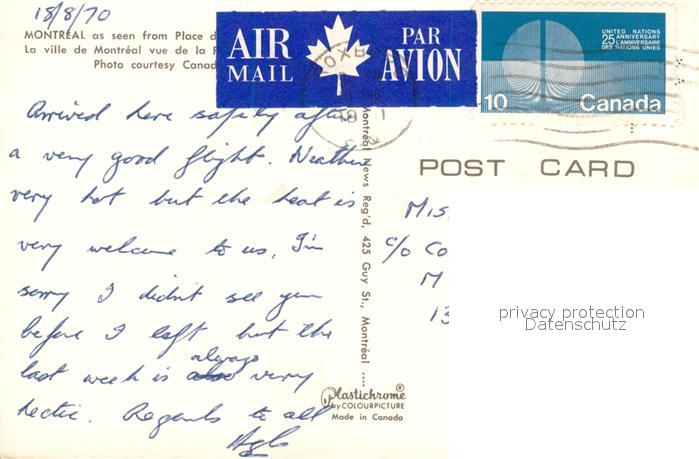 18/8/70
MONTRÉAL as seen from Place d
La ville de Montréal vue de la P
Photo courtesy Canad
AIR MAIL
PAR AVION
UNITED NATIONS
25th ANNIVERSARY
25e ANNIVERSAIRE
DES NATIONS UNIES
10 Canada
POST CARD
Arrived here safely after
a very good flight. Weather
very hot but the heat is
very welcome to us. I'm
sorry I didn't see you
before I left but the
last week is always very
hectic. Regards to all
Miss
c/o Co
M
13
Montréal News Reg'd, 425 Guy St., Montréal ....
Plastichrome®
by COLOURPICTURE
Made in Canada
privacy protection
Datenschutz